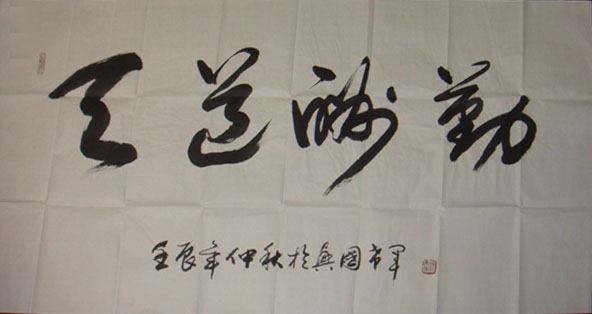 天道酬勤
壬辰年仲秋於兴國书军